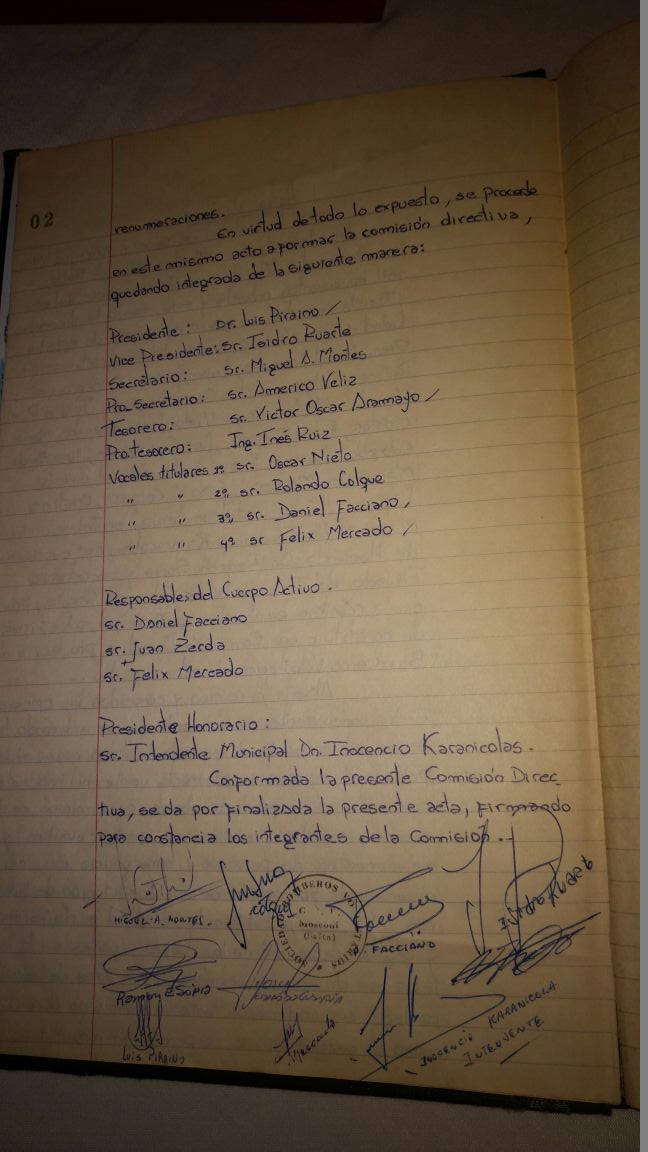 02
renumeraciones.
En virtud de todo lo expuesto, se procede
en este mismo acto a formar la comisión directiva,
quedando integrada de la siguiente manera:
Presidente: Dr. Luis Piraino /
Vice Presidente: Sr. Isidro Ruarte
Secretario: sr. Miguel A. Montes
Pro_Secretario: sr. Americo Veliz
Tesorero: sr. Victor Oscar Aramayo /
Pro.tesorero: Ing. Inés Ruiz
Vocales titulares 1º sr. Oscar Nieto
" " 2º, sr. Rolando Colque
" " 3º, sr. Daniel Facciano /
" " 4º sr Felix Mercado /
Responsables del Cuerpo Activo.
sr. Daniel Facciano
sr. Juan Zerda
sr. Felix Mercado
Presidente Honorario:
sr. Intendente Municipal Dn. Inocencio Karanicolas.
Conformada la presente Comisión Direc_
tiva, se da por finalizada la presente acta, firmando
para constancia los integrantes de la Comisión.-
MIGUEL-A. MONTES.
SOCIEDAD BOMBEROS VOLUNTARIOS
Mosconi
(Salta)
FACCIANO
ISIDRO RUARTE
Ramon
LUIS PIRAINO
Mercado
INOCENCIO KARANICOLA
INTENDENTE